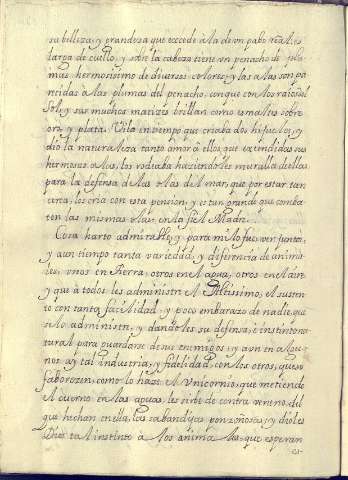 su belleza, y grandesa que excede à la de un pabo real, es
larga de cuello, y sobre la cabeza tiene un penacho de plu
mas hermosissimo de diversos colores, y las alas son pa
recidas a las plumas del penacho, conque con los raios del
Sol, y sus muchos matizes brillan como esmaltes sobre
oro, y plata. Vila en tiempo que criaba dos hijuelos, y
dio la naturaleza tanto amor à ellos, que extendidas sus
hermosas alas, los rodeaba haziendoles muralla de ellas
para la defensa de las olas del mar, que por estar tan
cerca, los cria con esta pension, y es tan grande que comba
ten las mismas olas en la fiel Madre.
Cosa harto admirable, y para mi lo fue, ver junta,
y aun tiempo tanta variedad, y diferencia de anima
les, unos en tierra, otros en Agua, otros en el Aire
y que à todos les administre el Altissimo, el susten
to con tanta facilidad y poco embarazo de nadie, que
se lo administre, y dandoles su defensa, è instinto na
tural para guardarse de sus enemigos, y aun en algu
nos ay tal industria, y fidelidad, con los otros, que se
faborezen, como lo haze el Unicornio, que metiendo
el cuerno en las aguas, les sirbe de contra veneno, del
que hechan en ella, las sabandijas ponzoñosas, y dioles
Dios tal instinto à los animales, que esperan